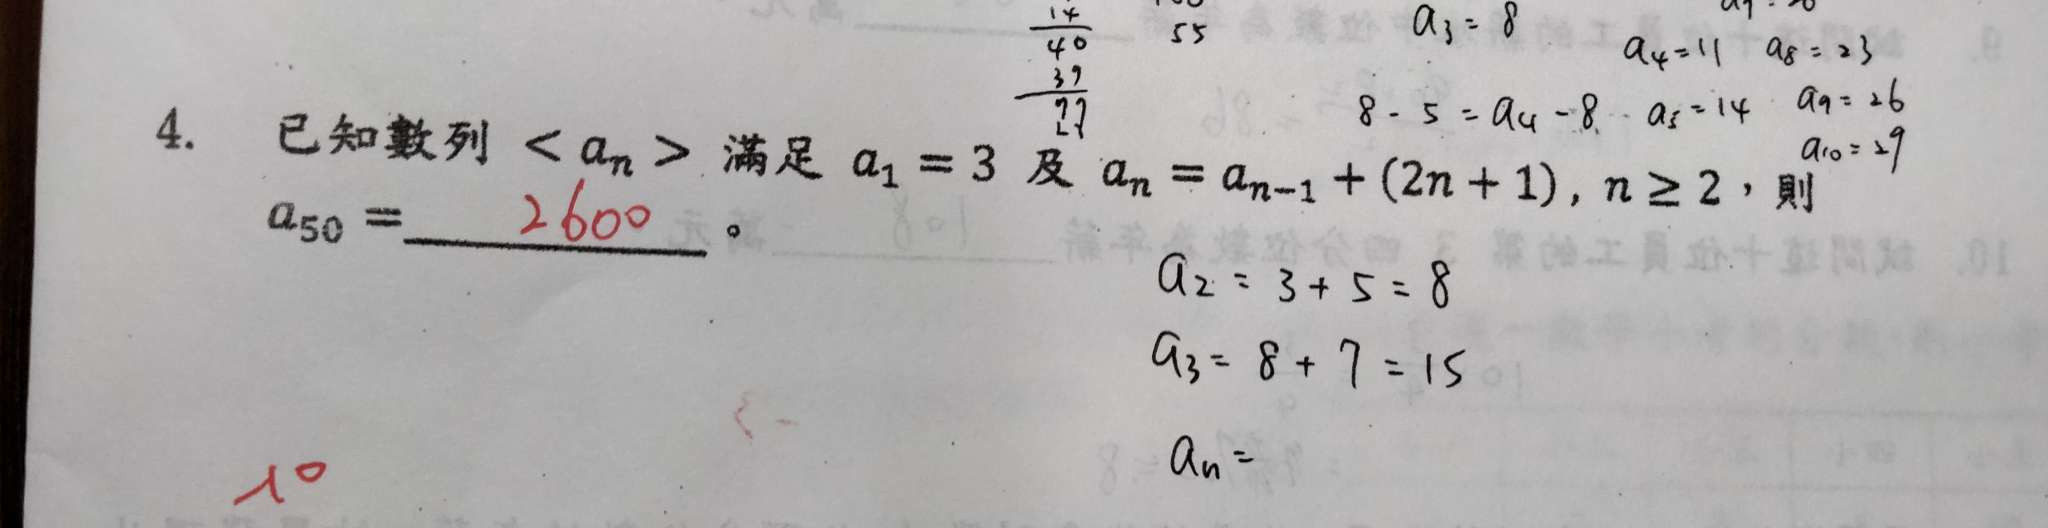 14
40
39
55
a₃ = 8
a₄ = 11 a₈ = 23
8 - 5 = a₄ - 8 a₅ = 14 a₉ = 26
a₁₀ = 29
4. 已知數列 < aₙ > 滿足 a₁ = 3 及 aₙ = aₙ₋₁ + (2n + 1), n ≥ 2，則
a₅₀ = 2600 。
a₂ = 3 + 5 = 8
a₃ = 8 + 7 = 15
aₙ =
10